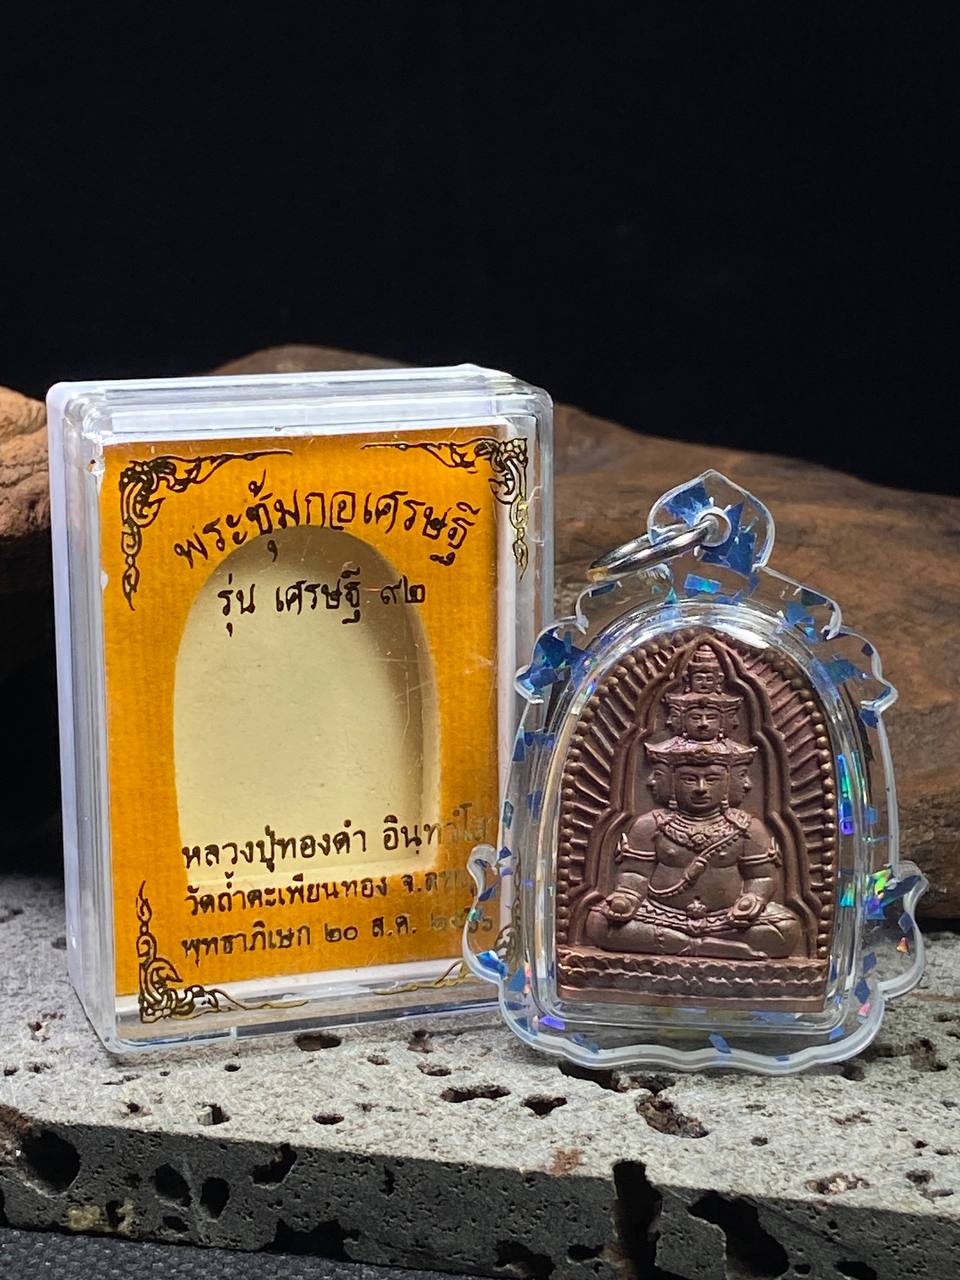 พระซุ้มกอเศรษฐี
รุ่น เศรษฐี ๙๒
หลวงปู่ทองดำ
วัดถ้ำตะเพียนทอง จ.
พุทธาภิเษก ๒๐ ส.ค.